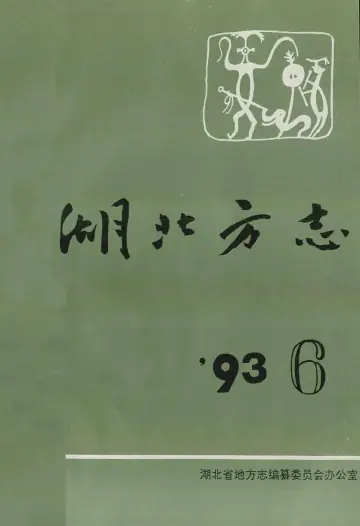 湖北方志
'93 6
湖北省地方志编纂委员会办公室